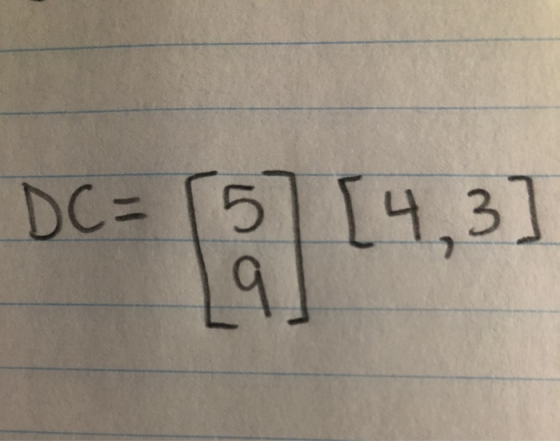 DC = [5 9] [4, 3]